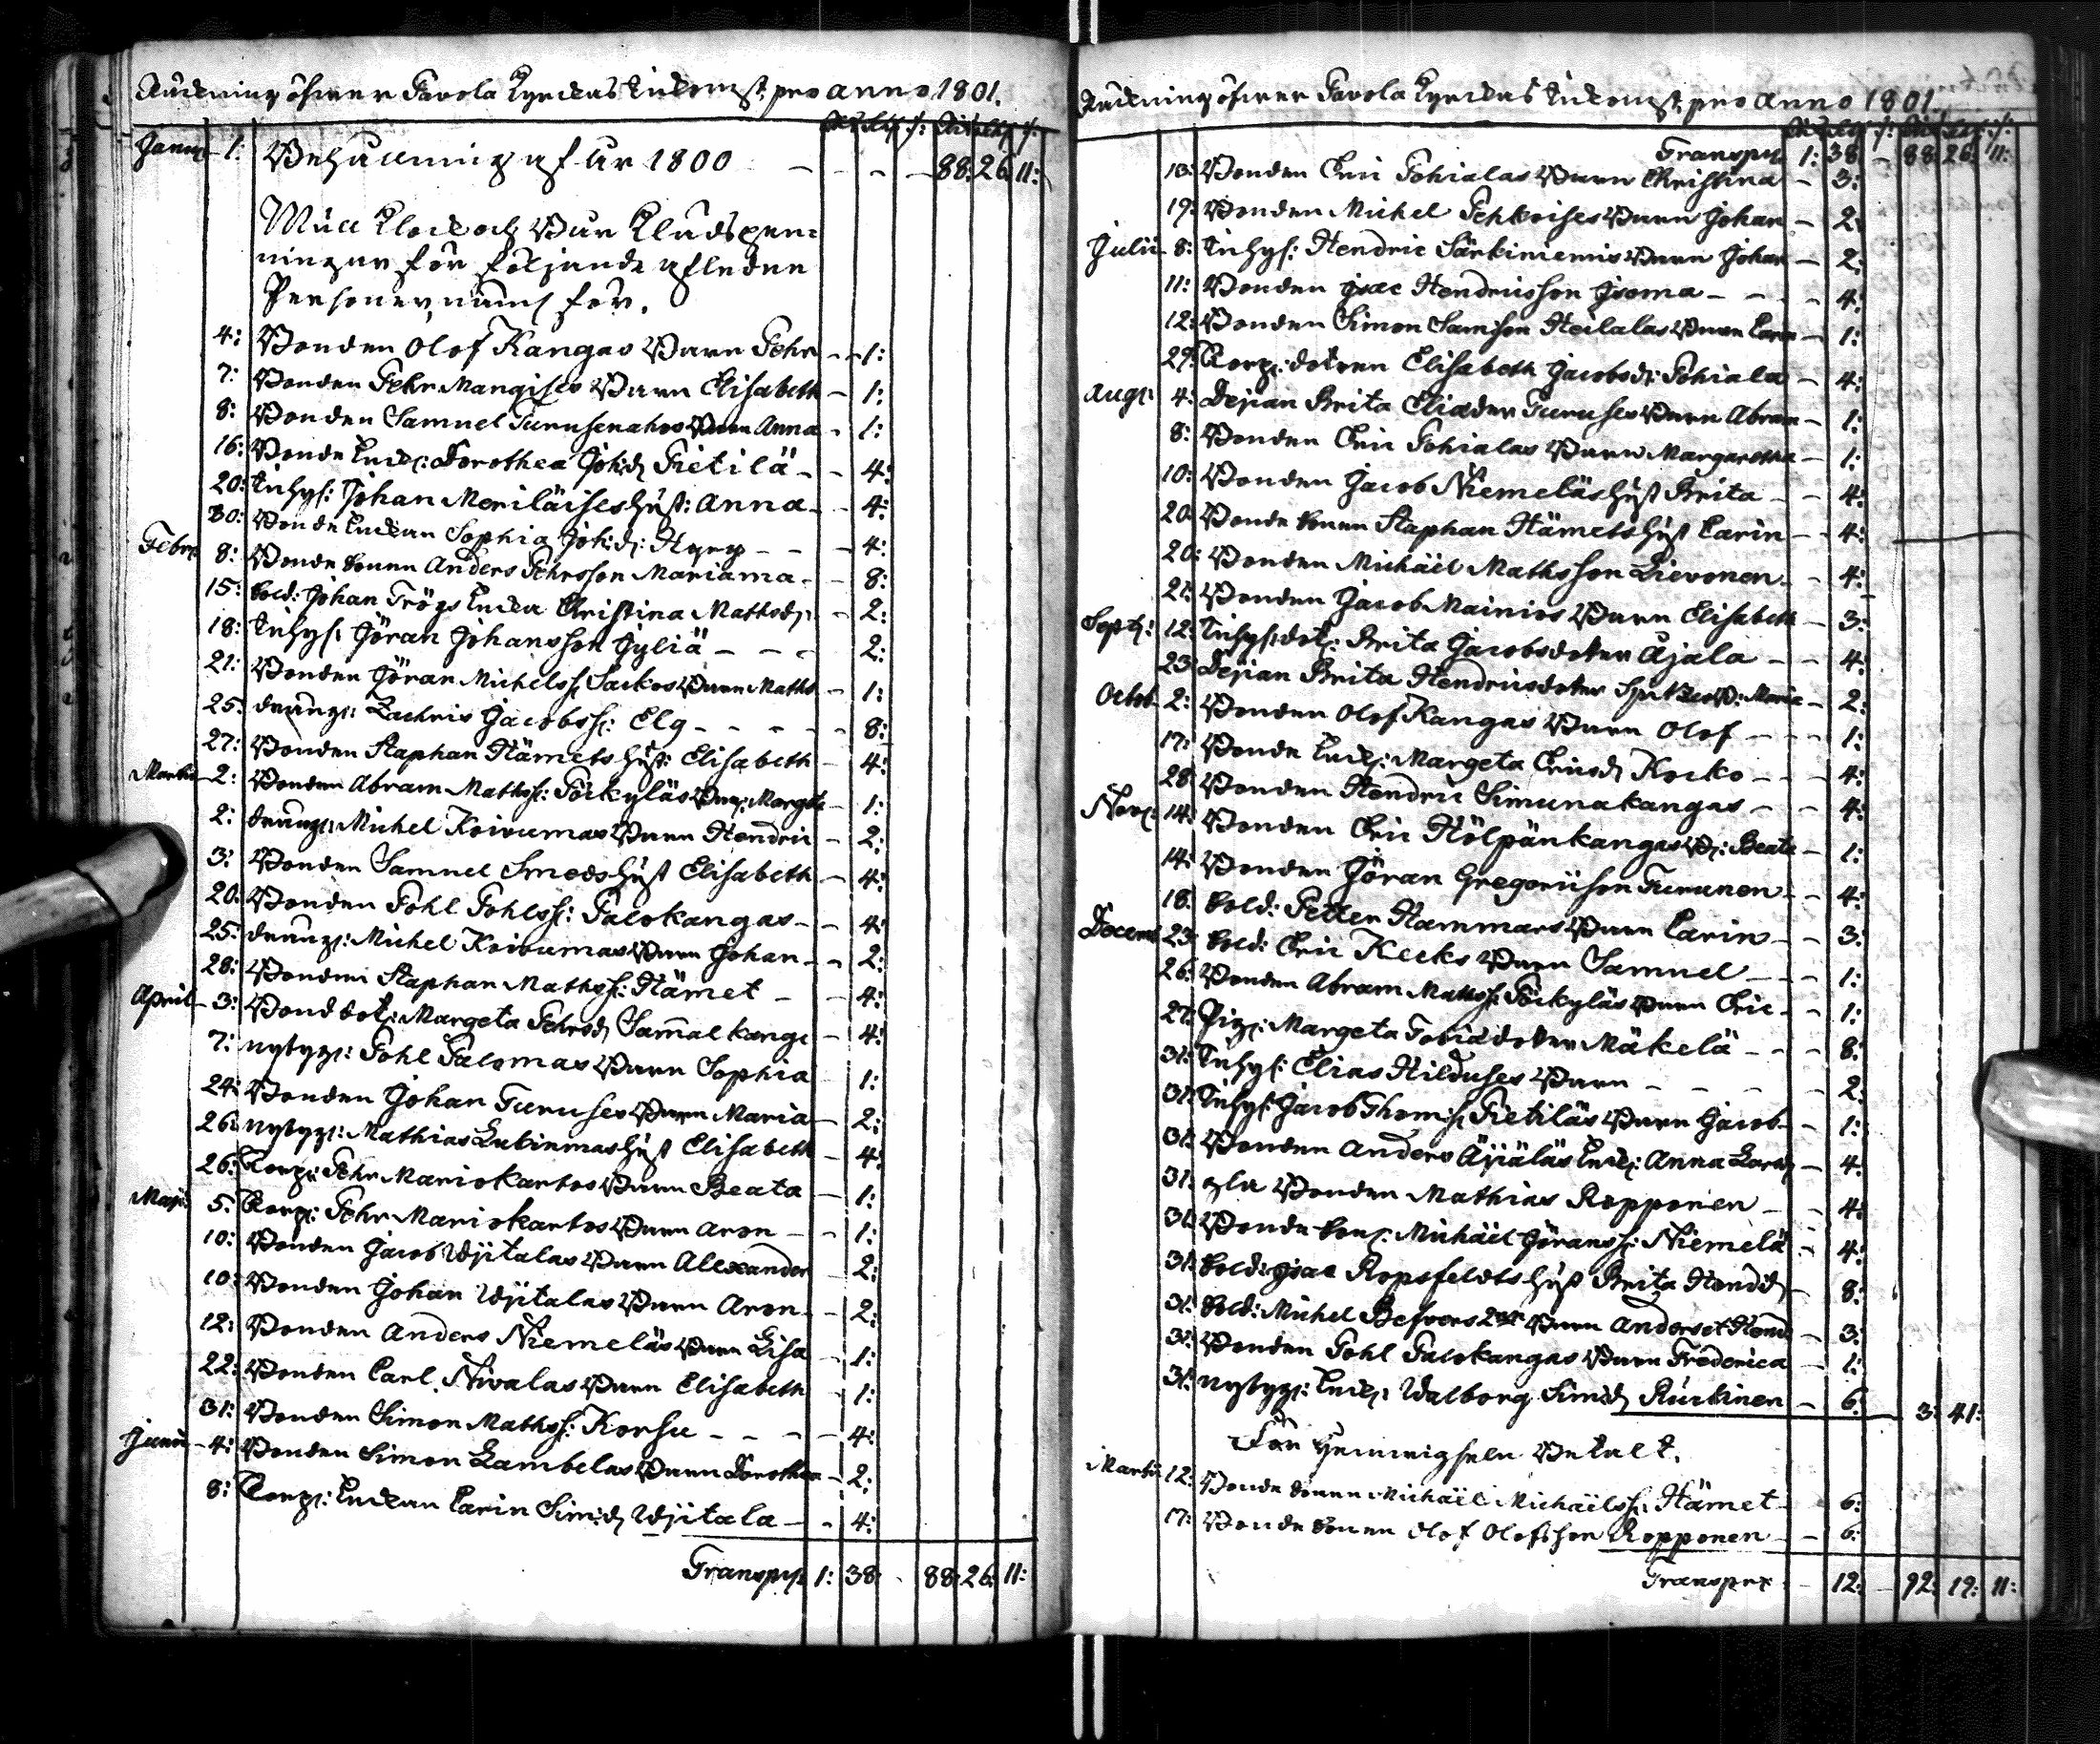 Räckning öfwer Pavola Kyrckas Inkomst, pro anno 1801.
Rd Sk r: Rd Sk r:
Janu: 1: Behållning af År 1800 - - - 88: 26: 11:
Mull Klock och Bår Kläds pen-
ningar för följande afledne
Personer, näml: för.
4: Bonden Olof Kangas Barn Pehr - - 1:
7: Bonden Pehr Mangises Barn Elisabeth - 1:
8: Bonden Samuel Turusenahos Barn Anna - 1:
16: Bonde Enck: Dorothea Joh:d: Pietilä - - 4:
20: Inhys: Johan Meriläises Hust: Anna - - 4:
30: Bonde Enckan Sophia Joh:d: Hyry - - - 4:
Febr: 8: Bonde Sonen Anders Pehrsson Mariama - - 8:
15: Sold: Johan Trögs Encka Christina Mathsd: - 2:
18: Inhys: Jöran Johansson Jyliä - - - 2:
21: Bonden Jöran Michelss: Sarkos Barn Maths - 1:
25: dräng: Zachris Jacobss: Elg - - - - 8:
27: Bonden Staphan Hämets Hust: Elisabeth - 4:
Martii 2: Bonden Abram Mathss: Törkyläs Barn: Margeta - 1:
2: dräng: Michel Koivumas Barn Hendric - 2:
3: Bonden Samuel Smeds Hust Elisabeth - 4:
20: Bonden Pohl Pohlss: Palokangas - - 4:
25: dräng: Michel Koivumas Barn Johan - - 2:
28: Bonden Staphan Mathss: Hämet - - 4:
April - 3: Bond dot: Margeta Pehrsd: Samalkange - 4:
7: nybyg: Pohl Palomas Barn Sophia 1:
24: Bonden Johan Turuses Barn Maria - 2:
26: nybyg: Mathias Lukinmas Hust Elisabeth - 4:
26: Corp: Pehr Mariokartos Barn Beata - 1:
Maji 5: Corp: Pehr Mariokartos Barn Aron - - 1:
10: Bonden Jacob Wjitalas Barn Alexander 2:
10: Bonden Johan Wjitalas Barn Aron - - 2:
12: Bonden Anders Niemeläs Barn Lisa - 1:
22: Bonden Carl Nivalas Barn Elisabeth - 1:
31: Bonden Simon Mathss: Korsu - - - - 4:
Junii - 4: Bonden Simon Lambelas Barn Dorothea - 2:
8: Corp: Enckan Carin Sim:d: Wjitala - - 4:
Transport 1: 38: - 88: 26: 11:
Räckning öfwer Pavola Kyrckas Inkomst, pro anno 1801.
Rd Sk r: Rd Sk r:
Transport 1: 38: - 88: 26: 11:
13: Bonden Eric Pohialas Barn Christina - 3:
19: Bonden Michel Pehkoises Barn Johan - 2:
Julii 8: Inhys: Hendric Särkiniemis Barn Johan - 2:
11: Bonden Isac Hendricsson Isoma - - - 4:
12: Bonden Simon Samsson Heilalas Barn Carin - 1:
29: Corp: dotren Elisabeth Jacobsd: Pohiala - 4:
Aug: 4: Pejian Brita Eliæder Turuses Barn Abram - 1:
8: Bonden Eric Pohialas Barn Margaretha - 1:
10: Bonden Jacob Niemeläs Hust Brita - - 4:
20: Bonde Sonen Staphan Hämets Hust Carin - - 4:
20: Bonden Michäel Mathsson Lievonen - - 4:
21: Bonden Jacob Mainios Barn Elisabeth - 3:
Sept: 12: Inhys: dot: Brita Jacobsdoter Äjälä - - 4:
23: Pejian Brita Hendricsdoter B: Maria - 2:
Octob 2: Bonden Olof Kangas Barn Olof - - - 1:
17: Bonde Enck: Margeta Ericsd: Korko - - - 4:
28: Bonden Hendric Simunakangas - - 4:
Nov: 14: Bonden Eric Hölpänkangas B: Beata - 1:
14: Bonden Jöran Gregoriison Turunen - - 4:
18: Sold: Petter Hammars Barn Carin - - 3:
Decemb 23: Sold: Eric Keeks Barn Samuel - - - 1:
26: Bonden Abram Mathss: Törkyläs Barn Eric - - 1:
27: Pig: Margeta Tobiædoter Mäkelä - - - 8:
31: Inhys: Elias Hilduses Barn - - - - 2:
31: Inhys: Jacob Thom:s: Pietiläs Barn Jacob - 1:
31: Bonden Anders Äijäläs Enck: Anna Larsd: - 4:
31: gla Bonden Mathias Ropponen - - 4:
31: Bonde Son: Michäel Jöranss: Niemelä - 4:
31: Sold: Isac Ropsfeldts Hust Brita Hend:d: - 8:
31: Sold: Michel Befvers 2ne Barn Anders et Hend - 3:
31: Bonden Pohl Palokangas Barn Frederica - 1:
31: nybyg: Enck: Walborg Sim:d: Rurkinen - 6: 3: 41:
För hemmigheln Betalt.
Martii 12: Bonde Sonen Michäel Michäelss: Hämet - 6:
17: Bonde Sonen Olof Olofsson Ropponen - - 6:
Transport - 12: - 92: 19: 11: